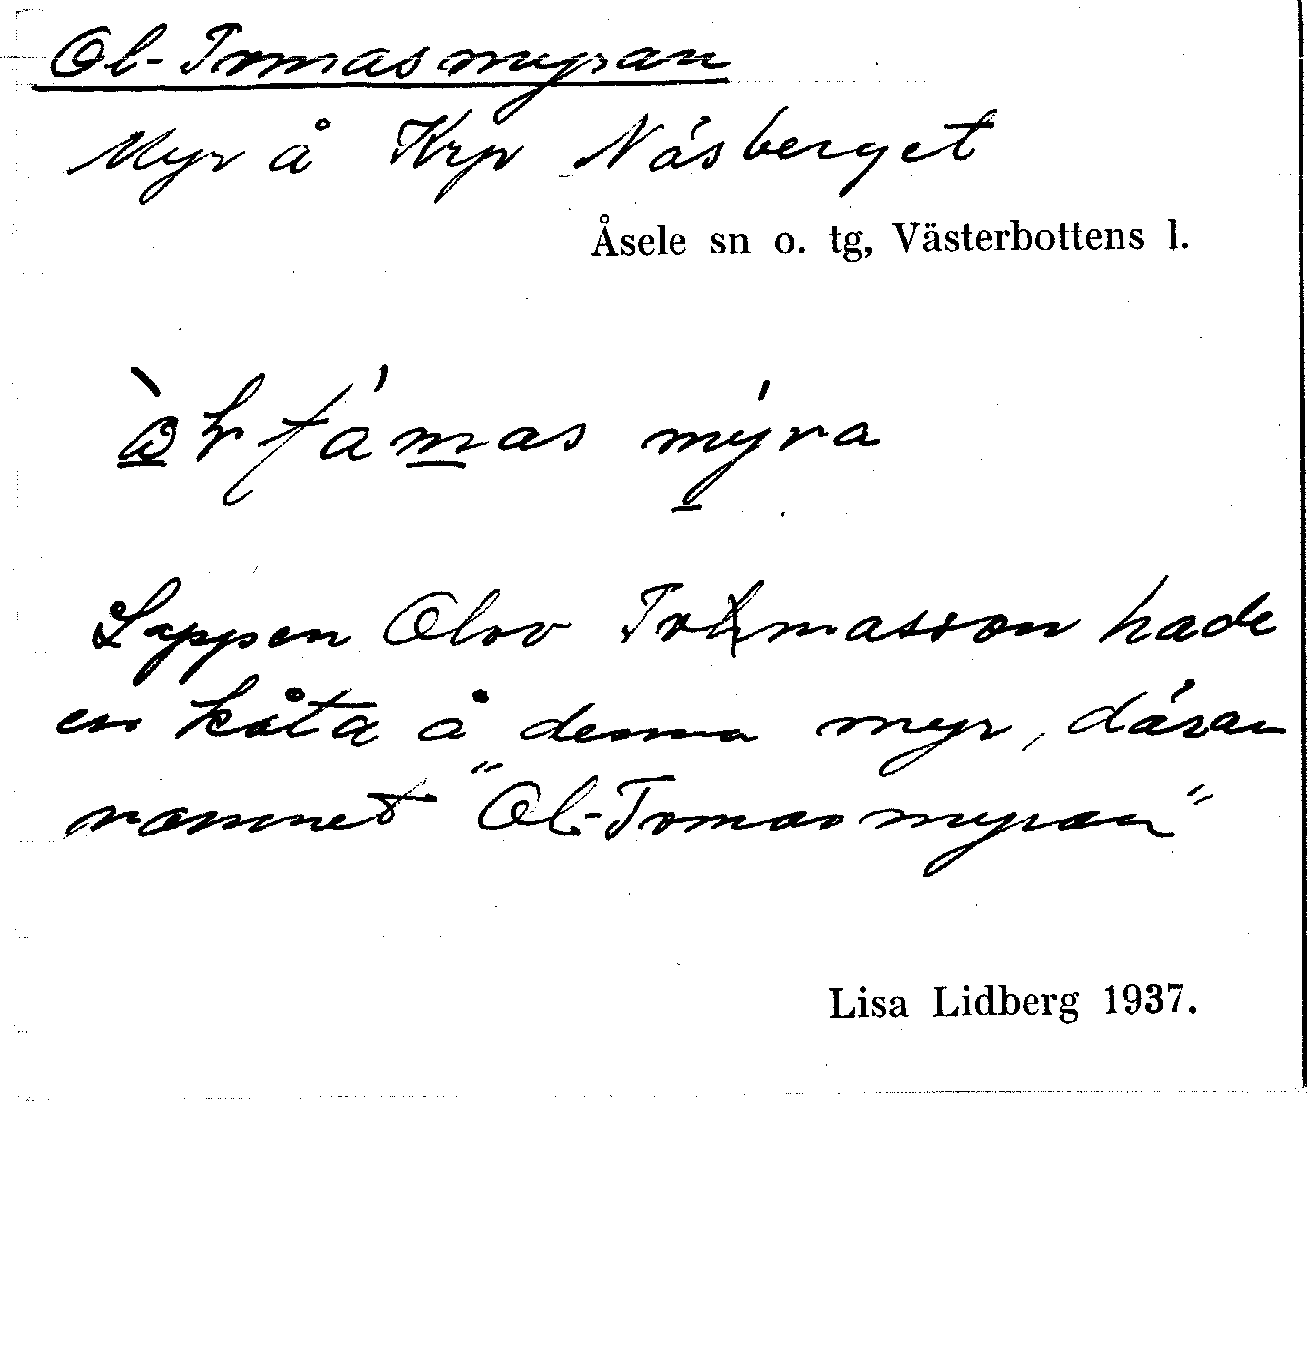 Ol-Tomasmyran
Myr å Krp Näsberget
Åsele sn o. tg, Västerbottens l.
myra
Lappen Olov Tomasson hade
en kåta å denna myr, därav
namnet "Ol-Tomasmyran"
Lisa Lidberg 1937.